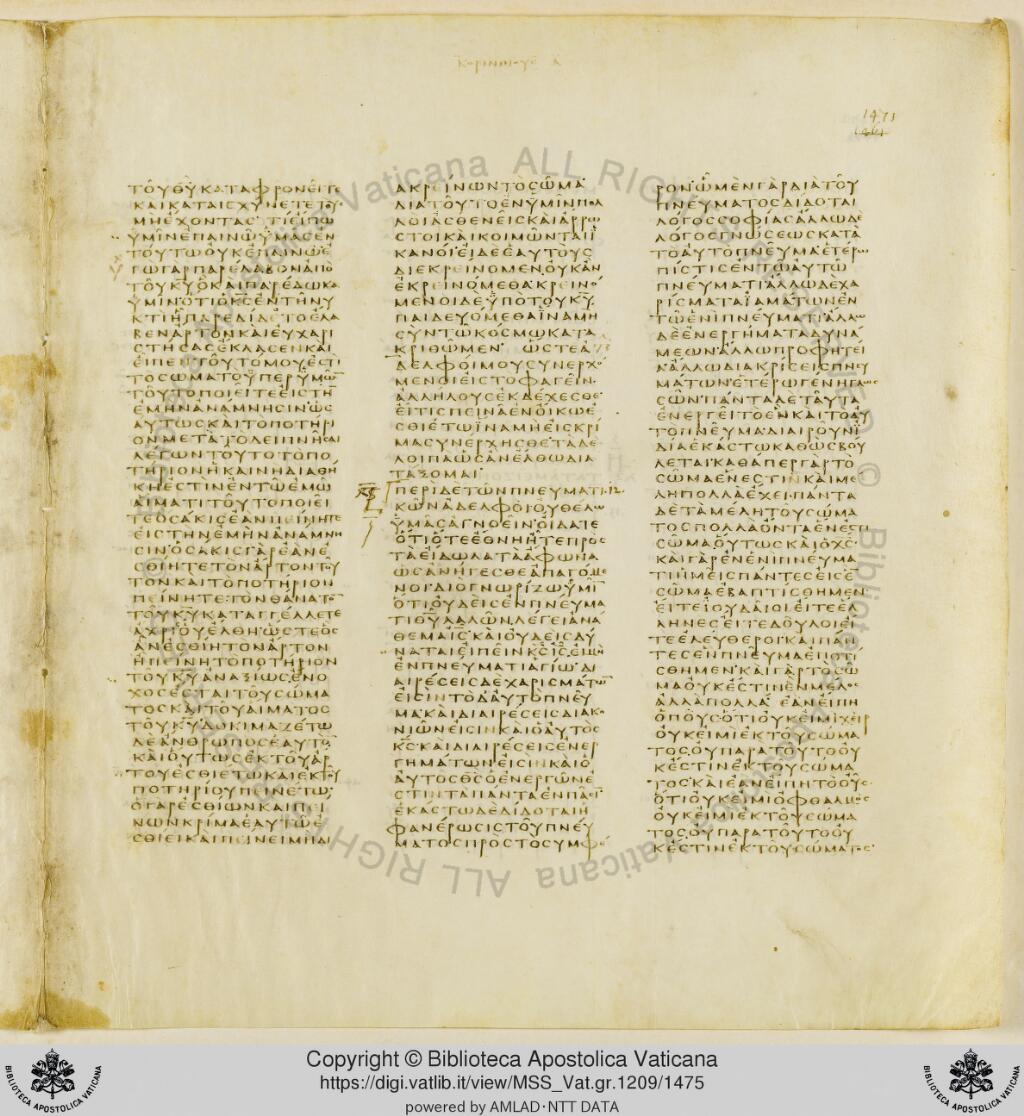 ΚΟΡΙΝΘΙΟΥϹ Α
1475
ΤΟΥΘΥΚΑΤΑΦΡΟΝΕΙΤΕ
ΚΑΙΚΑΤΑΙϹΧΥΝΕΤΕΤΟΥϹ
ΜΗΕΧΟΝΤΑϹ ΤΙΕΙΠΩ
ΥΜΙΝΕΠΑΙΝΩΥΜΑϹΕΝ
ΤΟΥΤΩΟΥΚΕΠΑΙΝΩΕ
ΓΩΓΑΡΠΑΡΕΛΑΒΟΝΑΠΟ
ΤΟΥΚΥΟΚΑΙΠΑΡΕΔΩΚΑ
ΥΜΙΝΟΤΙΟΚϹΕΝΤΗΝΥ
ΚΤΙΗΠΑΡΕΔΙΔΕΤΟΕΛΑ
ΒΕΝΑΡΤΟΝΚΑΙΕΥΧΑΡΙ
ϹΤΗϹΑϹΕΚΛΑϹΕΝΚΑΙ
ΕΙΠΕΝΤΟΥΤΟΜΟΥΕϹΤΙ
ΤΟϹΩΜΑΤΟΥΠΕΡΥΜΩ̅
ΤΟΥΤΟΠΟΙΕΙΤΕΕΙϹΤΗ̅
ΕΜΗΝΑΝΑΜΝΗϹΙΝΩϹ
ΑΥΤΩϹΚΑΙΤΟΠΟΤΗΡΙ
ΟΝΜΕΤΑΤΟΔΕΙΠΝΗϹΑΙ
ΛΕΓΩΝΤΟΥΤΟΤΟΠΟ
ΤΗΡΙΟΝΗΚΑΙΝΗΔΙΑΘΗ
ΚΗΕϹΤΙΝΕΝΤΩΕΜΩ
ΑΙΜΑΤΙΤΟΥΤΟΠΟΙΕΙ
ΤΕΟϹΑΚΙϹΕΑΝΠΕΙΝΗΤΕ
ΕΙϹΤΗΝΕΜΗΝΑΝΑΜΝΗ
ϹΙΝΟϹΑΚΙϹΓΑΡΕΑΝΕ
ϹΘΙΗΤΕΤΟΝΑΡΤΟΝΤΟΥ
ΤΟΝΚΑΙΤΟΠΟΤΗΡΙΟΝ
ΠΕΙΝΗΤΕΤΟΝΘΑΝΑΤΟ̅
ΤΟΥΚΥΚΑΤΑΓΓΕΛΛΕΤΕ
ΑΧΡΙΟΥΕΛΘΗΩϹΤΕΟϹ
ΑΝΕϹΘΙΗΤΟΝΑΡΤΟΝ
ΗΠΕΙΝΗΤΟΠΟΤΗΡΙΟΝ
ΤΟΥΚΥΑΝΑΞΙΩϹΕΝΟ
ΧΟϹΕϹΤΑΙΤΟΥϹΩΜΑ
ΤΟϹΚΑΙΤΟΥΑΙΜΑΤΟϹ
ΤΟΥΚΥΔΟΚΙΜΑΖΕΤΩ
ΔΕΑΝΘΡΩΠΟϹΕΑΥΤΟ̅
ΚΑΙΟΥΤΩϹΕΚΤΟΥΑΡ
ΤΟΥΕϹΘΙΕΤΩΚΑΙΕΚΤΟΥ
ΠΟΤΗΡΙΟΥΠΕΙΝΕΤΩ
ΟΓΑΡΕϹΘΙΩΝΚΑΙΠΕΙ
ΝΩΝΚΡΙΜΑΕΑΥΤΩΕ
ϹΘΙΕΙΚΑΙΠΕΙΝΕΙΜΗΔΙ
ΑΚΡΕΙΝΩΝΤΟϹΩΜΑ
ΔΙΑΤΟΥΤΟΕΝΥΜΙΝΠΟΛ
ΛΟΙΑϹΘΕΝΕΙϹΚΑΙΑΡΡΩ
ϹΤΟΙΚΑΙΚΟΙΜΩΝΤΑΙΪ
ΚΑΝΟΙΕΙΔΕΕΑΥΤΟΥϹ
ΔΙΕΚΡΕΙΝΟΜΕΝΟΥΚΑΝ
ΕΚΡΕΙΝΟΜΕΘΑΚΡΕΙΝΟ
ΜΕΝΟΙΔΕΫΠΟΤΟΥΚΥ
ΠΑΙΔΕΥΟΜΕΘΑΙΝΑΜΗ
ϹΥΝΤΩΚΟϹΜΩΚΑΤΑ
ΚΡΙΘΩΜΕΝ ΩϹΤΕΑ
ΔΕΛΦΟΙΜΟΥϹΥΝΕΡΧΟ
ΜΕΝΟΙΕΙϹΤΟΦΑΓΕΙΝ
ΑΛΛΗΛΟΥϹΕΚΔΕΧΕϹΘΕ
ΕΙΤΙϹΠΕΙΝΑΕΝΟΙΚΩΕ
ϹΘΙΕΤΩΙΝΑΜΗΕΙϹΚΡΙ
ΜΑϹΥΝΕΡΧΗϹΘΕΤΑΔΕ
ΛΟΙΠΑΩϹΑΝΕΛΘΩΔΙΑ
ΤΑΞΟΜΑΙ
ΠΕΡΙΔΕΤΩΝΠΝΕΥΜΑΤΙ
ΚΩΝΑΔΕΛΦΟΙΟΥΘΕΛΩ
ΥΜΑϹΑΓΝΟΕΙΝΟΙΔΑΤΕ
ΟΤΙΟΤΕΕΘΝΗΗΤΕΠΡΟϹ
ΤΑΕΙΔΩΛΑΤΑΑΦΩΝΑ
ΩϹΑΝΗΓΕϹΘΕΑΠΑΓΟΜΕ
ΝΟΙΔΙΟΓΝΩΡΙΖΩΥΜΙ̅
ΟΤΙΟΥΔΕΙϹΕΝΠΝΕΥΜΑ
ΤΙΘΥΛΑΛΩΝΛΕΓΕΙΑΝΑ
ΘΕΜΑΙϹΚΑΙΟΥΔΕΙϹΔΥ
ΝΑΤΑΙΕΙΠΕΙΝΚϹΙϹΕΙΜΗ
ΕΝΠΝΕΥΜΑΤΙΑΓΙΩΔΙ
ΑΙΡΕϹΕΙϹΔΕΧΑΡΙϹΜΑΤΩ̅
ΕΙϹΙΝΤΟΔΑΥΤΟΠΝΕΥ
ΜΑΚΑΙΔΙΑΙΡΕϹΕΙϹΔΙΑΚΟ
ΝΙΩΝΕΙϹΙΝΚΑΙΟΑΥΤΟϹ
ΚϹΚΑΙΔΙΑΙΡΕϹΕΙϹΕΝΕΡ
ΓΗΜΑΤΩΝΕΙϹΙΝΚΑΙΟ
ΑΥΤΟϹΘϹΟΕΝΕΡΓΩΝΕ
ϹΤΙΝΤΑΠΑΝΤΑΕΝΠΑϹΙ̅
ΕΚΑϹΤΩΔΕΔΙΔΟΤΑΙΗ
ΦΑΝΕΡΩϹΙϹΤΟΥΠΝΕΥ
ΜΑΤΟϹΠΡΟϹΤΟϹΥΜΦΕ
ΡΟΝΩΜΕΝΓΑΡΔΙΑΤΟΥ
ΠΝΕΥΜΑΤΟϹΔΙΔΟΤΑΙ
ΛΟΓΟϹϹΟΦΙΑϹΑΛΛΩΔΕ
ΛΟΓΟϹΓΝΩϹΕΩϹΚΑΤΑ
ΤΟΑΥΤΟΠΝΕΥΜΑΕΤΕΡΩ
ΠΙϹΤΙϹΕΝΤΩΑΥΤΩ
ΠΝΕΥΜΑΤΙΑΛΛΩΔΕΧΑ
ΡΙϹΜΑΤΑΪΑΜΑΤΩΝΕΝ
ΤΩΕΝΙΠΝΕΥΜΑΤΙΑΛΛΩ
ΔΕΕΝΕΡΓΗΜΑΤΑΔΥΝΑ
ΜΕΩΝΑΛΛΩΠΡΟΦΗΤΕΙ
ΑΑΛΛΩΔΙΑΚΡΙϹΕΙϹΠΝΕΥ
ΜΑΤΩΝΕΤΕΡΩΓΕΝΗΓΛΩϹ
ϹΩΝΠΑΝΤΑΔΕΤΑΥΤΑ
ΕΝΕΡΓΕΙΤΟΕΝΚΑΙΤΟΑΥ
ΤΟΠΝΕΥΜΑΔΙΑΙΡΟΥΝΙ
ΔΙΑΕΚΑϹΤΩΚΑΘΩϹΒΟΥ
ΛΕΤΑΙΚΑΘΑΠΕΡΓΑΡΤΟ
ϹΩΜΑΕΝΕϹΤΙΝΚΑΙΜΕ
ΛΗΠΟΛΛΑΕΧΕΙΠΑΝΤΑ
ΔΕΤΑΜΕΛΗΤΟΥϹΩΜΑ
ΤΟϹΠΟΛΛΑΟΝΤΑΕΝΕϹΤΙ
ϹΩΜΑΟΥΤΩϹΚΑΙΟΧϹ
ΚΑΙΓΑΡΕΝΕΝΙΠΝΕΥΜΑ
ΤΙΗΜΕΙϹΠΑΝΤΕϹΕΙϹΕ̅
ϹΩΜΑΕΒΑΠΤΙϹΘΗΜΕΝ
ΕΙΤΕΙΟΥΔΑΙΟΙΕΙΤΕΕΛ
ΛΗΝΕϹΕΙΤΕΔΟΥΛΟΙΕΙ
ΤΕΕΛΕΥΘΕΡΟΙΚΑΙΠΑΝ
ΤΕϹΕΝΠΝΕΥΜΑΕΠΟΤΙ
ϹΘΗΜΕΝΚΑΙΓΑΡΤΟϹΩ
ΜΑΟΥΚΕϹΤΙΝΕΝΜΕΛΟϹ
ΑΛΛΑΠΟΛΛΑ ΕΑΝΕΙΠΗ
ΟΠΟΥϹΟΤΙΟΥΚΕΙΜΙΧΕΙΡ
ΟΥΚΕΙΜΙΕΚΤΟΥϹΩΜΑ
ΤΟϹΟΥΠΑΡΑΤΟΥΤΟΟΥ
ΚΕϹΤΙΝΕΚΤΟΥϹΩΜΑ
ΤΟϹΚΑΙΕΑΝΕΙΠΗΤΟΟΥϹ
ΟΤΙΟΥΚΕΙΜΙΟΦΘΑΛΜΟϹ
ΟΥΚΕΙΜΙΕΚΤΟΥϹΩΜΑ
ΤΟϹΟΥΠΑΡΑΤΟΥΤΟΟΥ
ΚΕϹΤΙΝΕΚΤΟΥϹΩΜΑΤΟϹ
Copyright © Biblioteca Apostolica Vaticana
https://digi.vatlib.it/view/MSS_Vat.gr.1209/1475
powered by AMLAD·NTT DATA
BIBLIOTECA APOSTOLICA VATICANA
BIBLIOTECA APOSTOLICA VATICANA